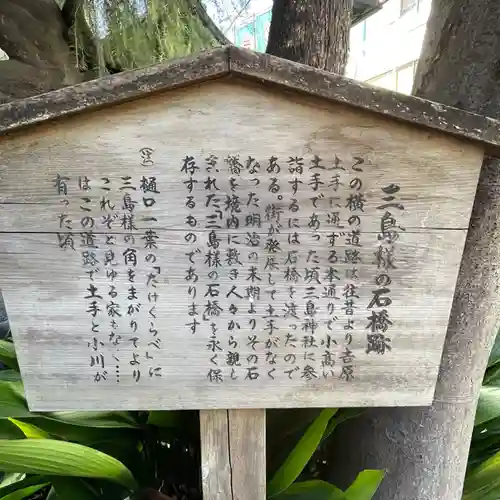 三島様の石橋跡
この横の道路は往昔より吉原
土手に通ずる本通りで小高い
土手であった頃三島神社に参
詣するには石橋を渡ったので
ある。街が発展して土手がなく
なった明治の末期よりその石
橋を境内に敷き人々から親し
まれた「三島様の石橋」を永く保
存するものであります
(注) 樋口一葉の「たけくらべ」に
三島様の角をまがりてより
これぞと見ゆる家もなく……
はこの道路で土手と小川が
有った頃